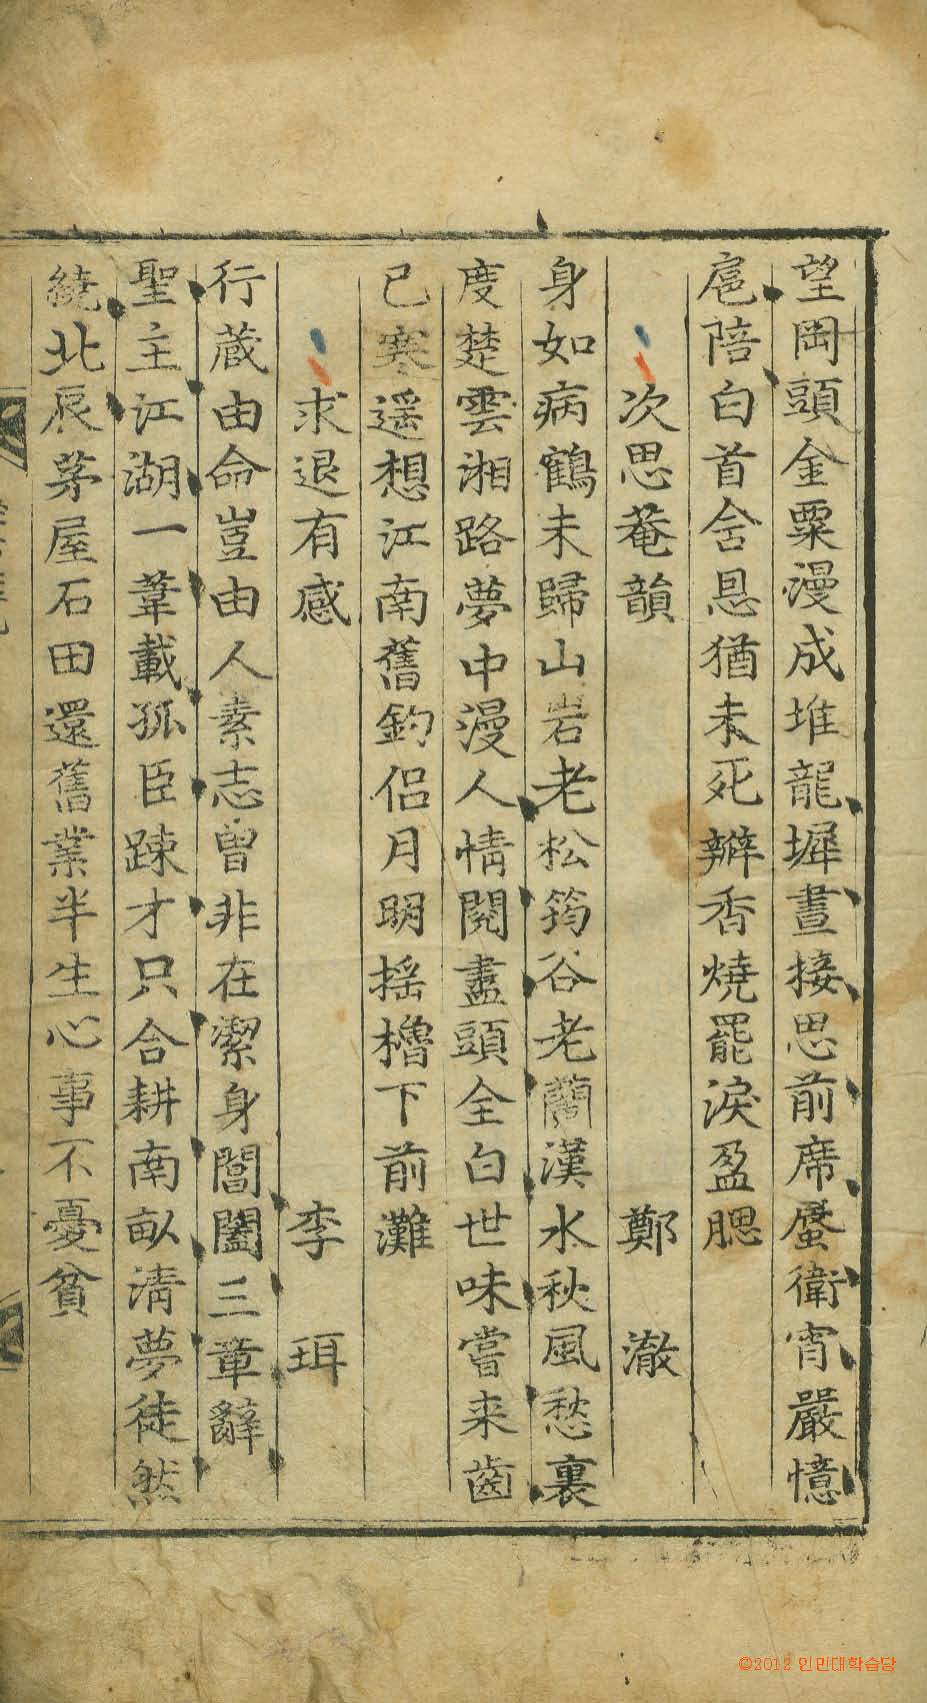 望岡頭金粟漫成堆龍墀晝接思前席蜃衛宵嚴憶
扈陪白首含恩猶未死瓣香燒罷淚盈腮
次思菴韻 鄭 澈
身如病鶴未歸山岩老松筠谷老蘭漢水秋風愁裏
度楚雲湘路夢中漫人情閱盡頭全白世味嘗来齒
已寒遥想江南舊釣侶月明摇櫓下前灘
求退有感 李 珥
行蔵由命豈由人素志曽非在潔身閶闔三章辭
聖主江湖一葦載孤臣踈才只合耕南畝清夢徒然
繞北辰茅屋石田還舊業半生心事不憂貧
©2012 인민대학습당